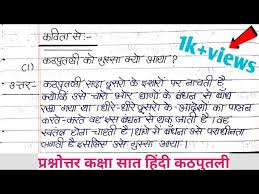 1k+views
कविता से:-
(1) कठपुतली को गुस्सा क्यों आया ?
उत्तर- कठपुतली सदा दूसरों के इशारों पर नाचती है
क्योंकि उसे चारों ओर धागों के बंधन से बाँध
रखा गया था। धीरे-धीरे दूसरों के आदेशों का पालन
करते-करते वह इस बंधन से थक जाती है। वह
स्वतंत्र होना चाहती है। धागे में बंधना उसे पराधीनता
लगती है इसलिए उसे गुस्सा आया।
प्रश्नोत्तर कक्षा सात हिंदी कठपुतली